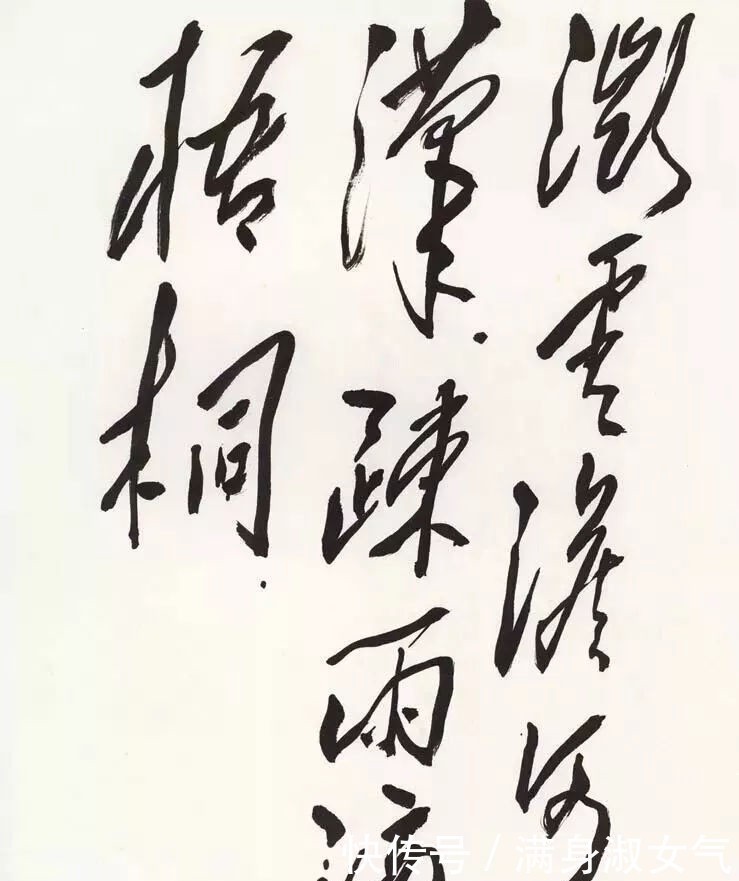 微雲澹河
漢.疎雨滴
梧桐.
快传号 / 满身淑女气